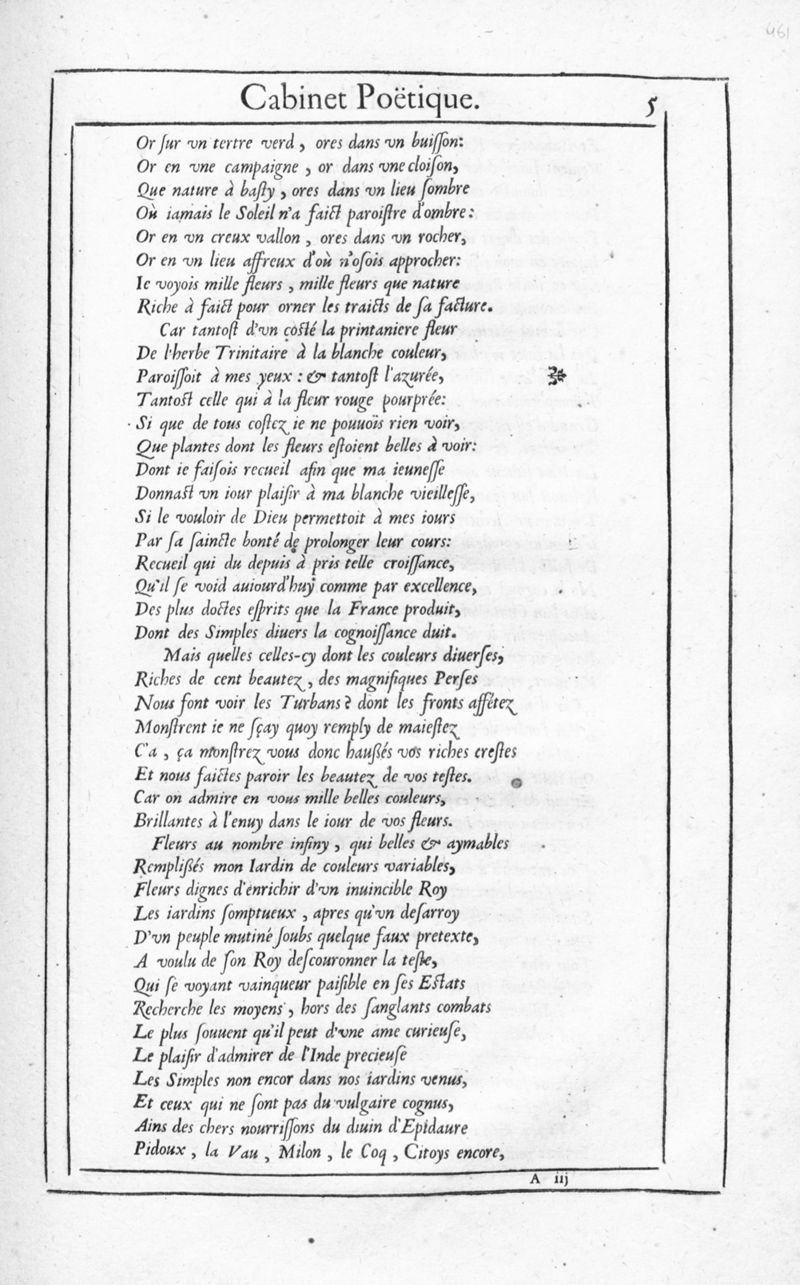 461
Cabinet Poëtique. 5
Or ſur vn tertre verd, ores dans vn buiſſon:
Or en vne campaigne, or dans vne cloiſon,
Que nature à baſty, ores dans vn lieu ſombre
Où iamais le Soleil n'a faict paroiſtre d'ombre:
Or en vn creux vallon, ores dans vn rocher,
Or en vn lieu affreux d'où n'oſois approcher:
Ie voyois mille fleurs, mille fleurs que nature
Riche à faict pour orner les traicts de ſa facture.
Car tantoſt d'vn coſté la printaniere fleur
De l'herbe Trinitaire à la blanche couleur,
Paroiſſoit à mes yeux: & tantoſt l'azurée,
Tantoſt celle qui à la fleur rouge pourprée:
Si que de tous coſtez ie ne pouuois rien voir,
Que plantes dont les fleurs eſtoient belles à voir:
Dont ie faiſois recueil afin que ma ieuneſſe
Donnaſt vn iour plaiſir à ma blanche vieilleſſe,
Si le vouloir de Dieu permettoit à mes iours
Par ſa ſaincte bonté de prolonger leur cours:
Recueil qui du depuis à pris telle croiſſance,
Qu'il ſe void auiourd'huy comme par excellence,
Des plus doctes eſprits que la France produit,
Dont des Simples diuers la cognoiſſance duit.
Mais quelles celles-cy dont les couleurs diuerſes,
Riches de cent beautez, des magnifiques Perſes
Nous font voir les Turbans? dont les fronts affétez
Monſtrent ie ne ſçay quoy remply de maieſtez
C'a, ça monſtrez vous donc hauſſés vos riches creſtes
Et nous faictes paroir les beautez de vos teſtes.
Car on admire en vous mille belles couleurs,
Brillantes à l'enuy dans le iour de vos fleurs.
Fleurs au nombre infiny, qui belles & aymables
Rempliſſés mon Iardin de couleurs variables,
Fleurs dignes d'enrichir d'vn inuincible Roy
Les iardins ſomptueux, apres qu'vn deſarroy
D'vn peuple mutiné ſoubs quelque faux pretexte,
A voulu de ſon Roy deſcouronner la teſte,
Qui ſe voyant vainqueur paiſible en ſes Eſtats
Recherche les moyens, hors des ſanglants combats
Le plus ſouuent qu'il peut d'vne ame curieuſe,
Le plaiſir d'admirer de l'Inde precieuſe
Les Simples non encor dans nos iardins venus,
Et ceux qui ne ſont pas du vulgaire cognus,
Ains des chers nourriſſons du diuin d'Epidaure
Pidoux, la Vau, Milon, le Coq, Citoys encore,
A iij